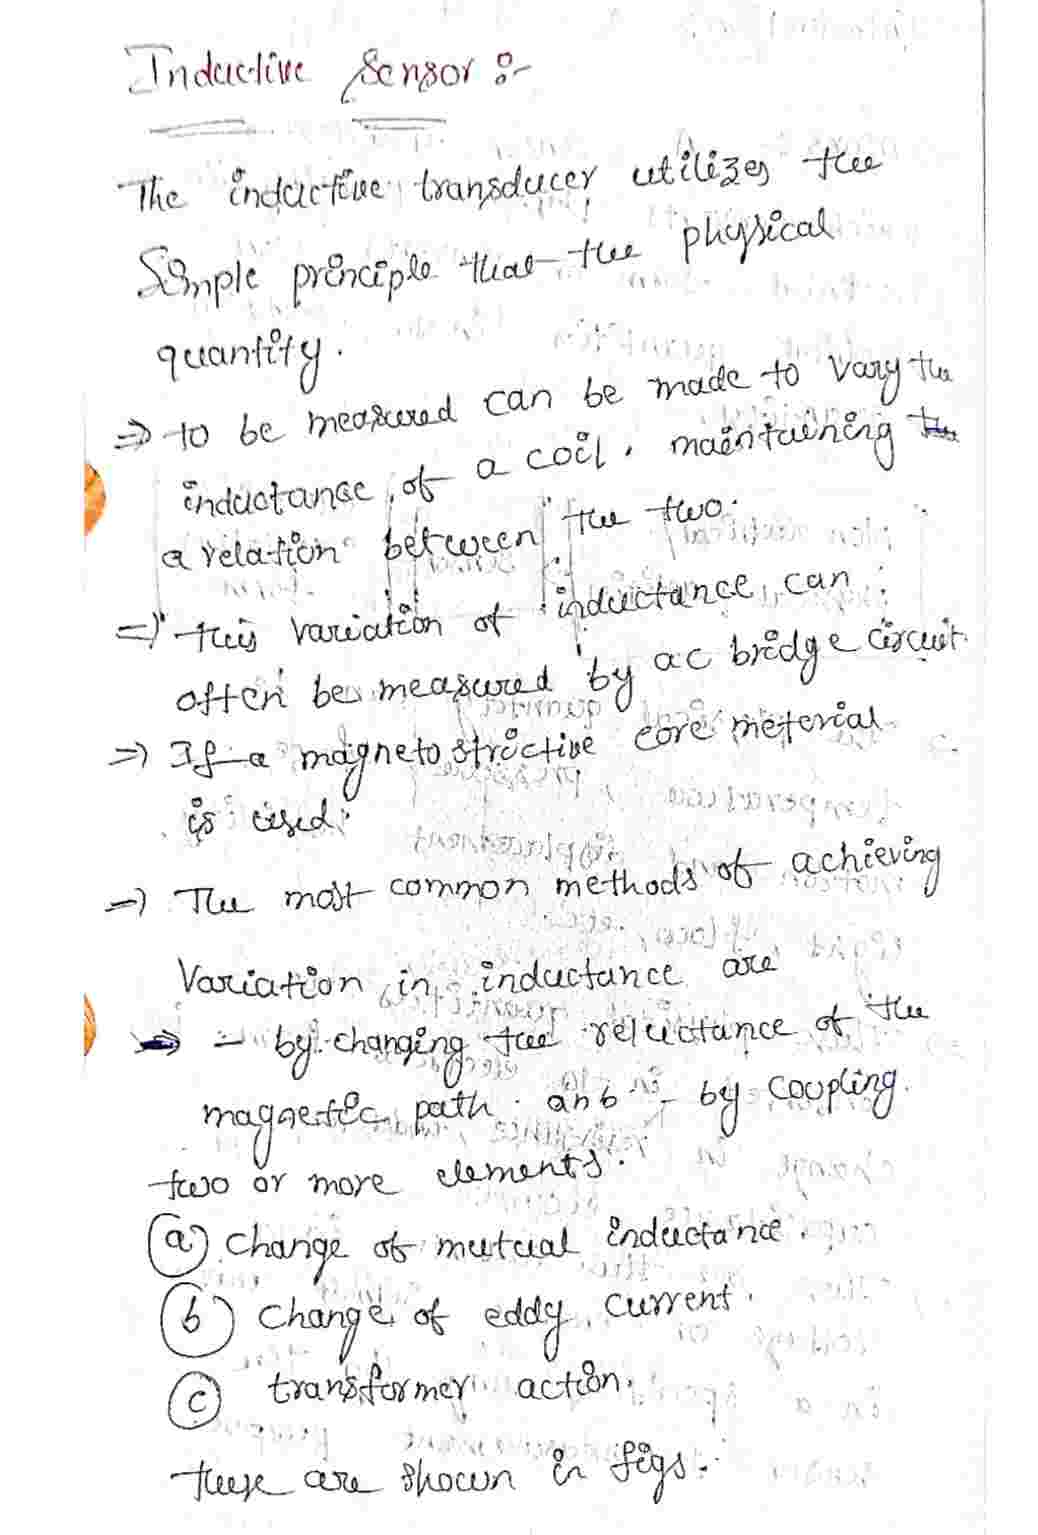 Inductive Sensor :-
The inductive transducer utilizes the
Simple principle that the physical
quantity.
⇒ to be measured can be made to vary the
inductance of a coil, maintaining
a relation between the two.
⇒ this variation of inductance can
often be measured by ac bridge circuit.
⇒ If a magneto strictive core meterial
is used.
⇒ The most common methods of achieving
Variation in inductance are
⇒ - by changing the reluctance of the
magnetic path. anb - by coupling
two or more elements.
(a) change of mutual inductance.
(b) change of eddy current.
(c) transformer action.
these are shown in figs.